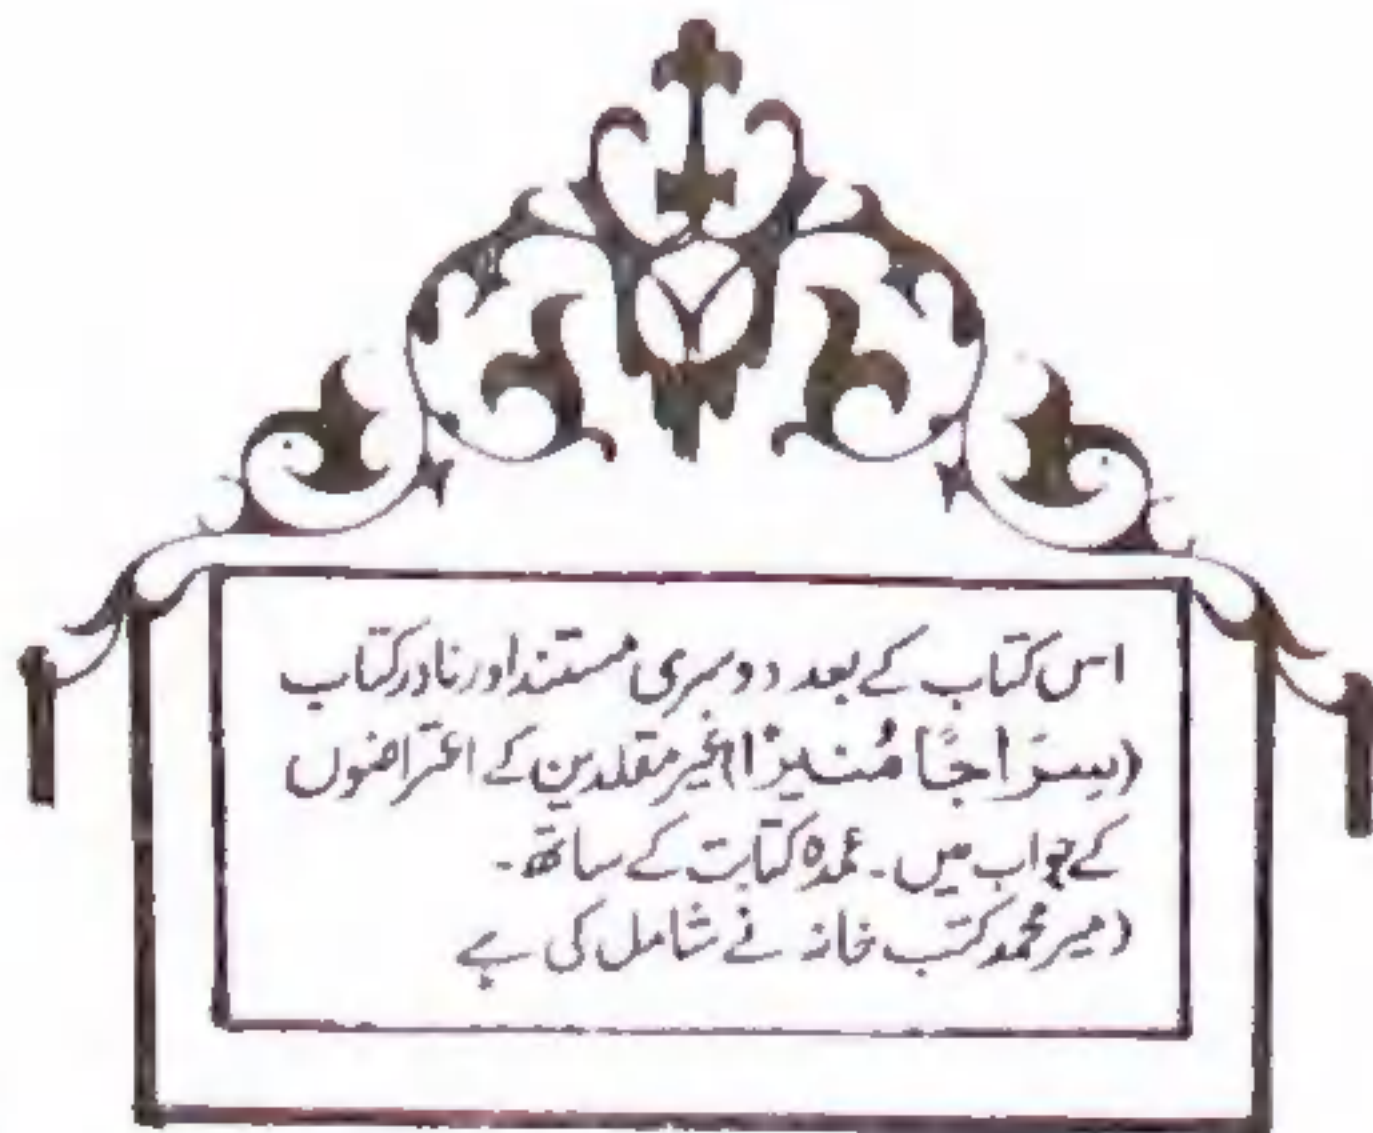 اس کتاب کے بعد دوسری مستند اور نادر کتاب
(سِرَاجًا مُنیرًا) غیر مقلدین کے اعتراضوں
کے جواب میں۔ عمدہ کتابت کے ساتھ۔
(میر محمد کتب خانہ نے شامل کی ہے